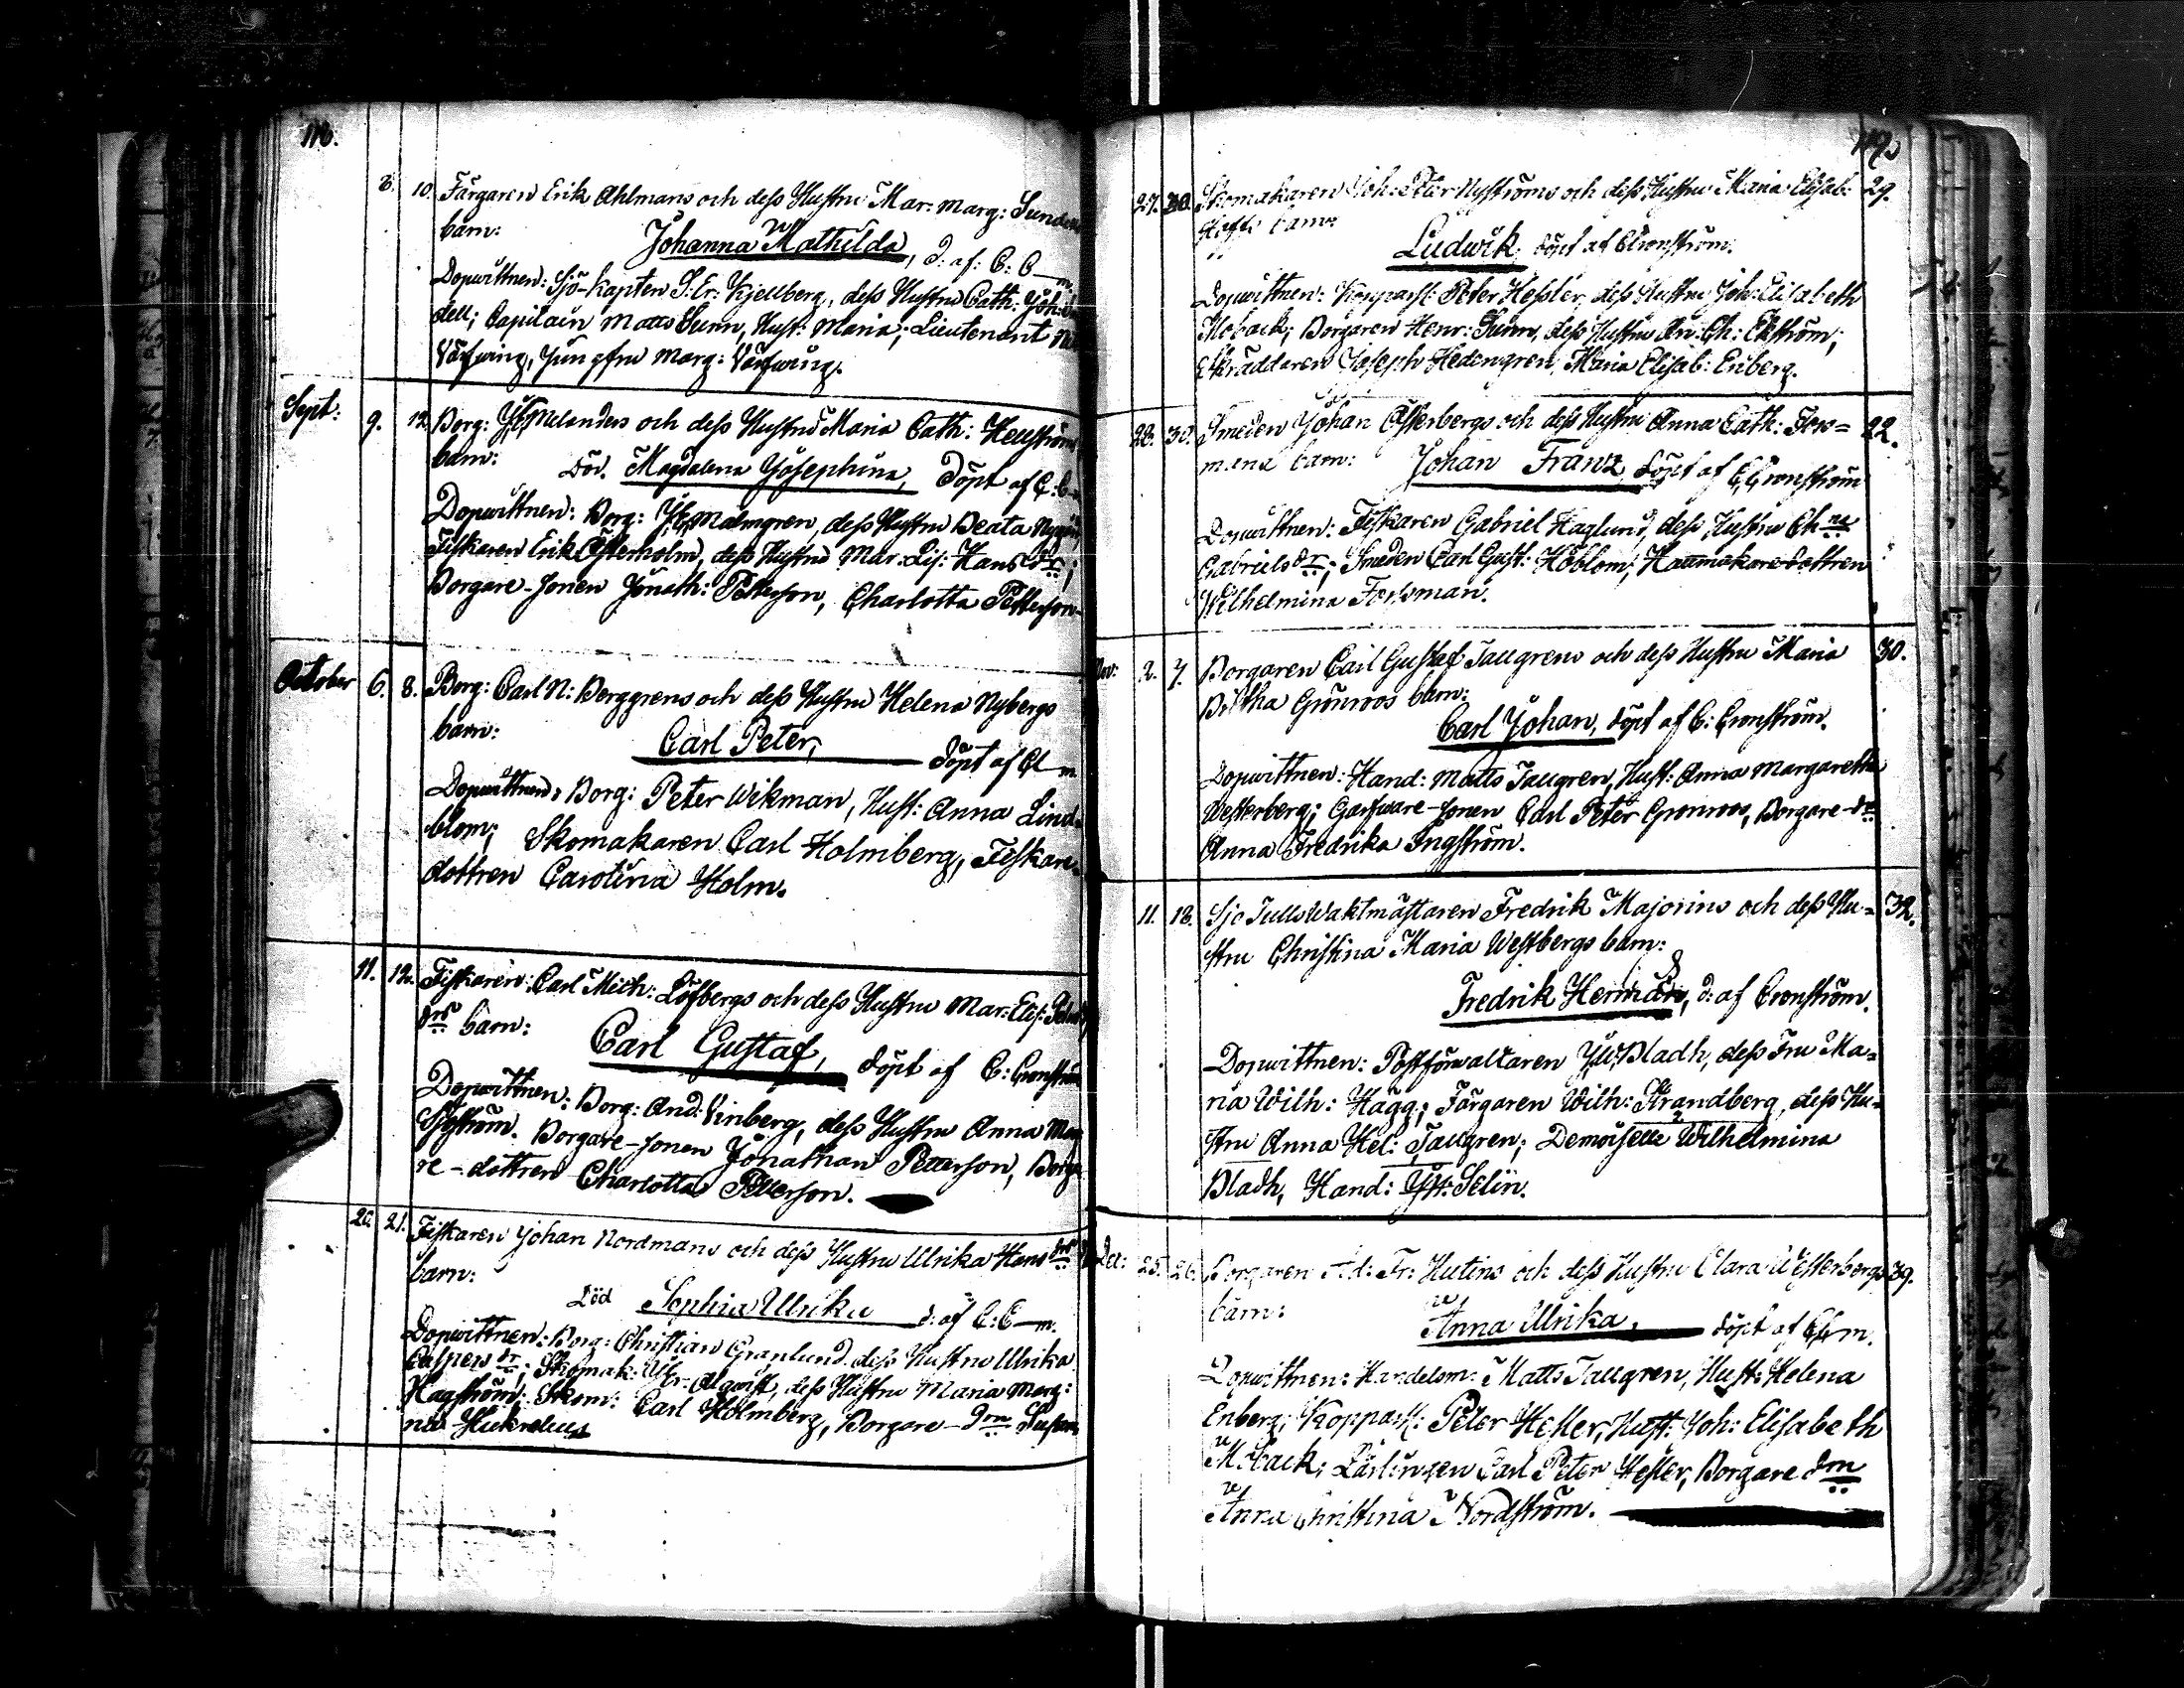 116.
8. 10. Färgaren Erik Ahlmans och dess Hustru Mar: Marg:
barn: Johanna Mathilda, d: af: C: C—m.
Dopwittnen: Sjö-kapten S: Er: Kjellberg, dess Hustru Cath:
dell; Capitain Matts Sunn, Hust: Maria; Lieutenant
Jungfru Marg:
Sept: 9. 12. Borg: Melanders och dess Hustru Maria Cath: Hellström
barn: Död. Magdalena Josephina, döpt af C: C—
Dopwittnen: Borg: Malmgren, dess Hustru Beata
Fiskaren Erik Österholm, dess Hustru Mar: Lis: Hans dr;
Borgare-sonen Jonath: Petterson, Charlotta Petterson
October 6. 8. Borg: Carl N: Berggrens och dess Hustru Helena Nybergs
barn: Carl Peter, döpt af C—m
Dopwittnen: Borg: Peter Wikman, Hust: Anna Lind-
blom; Skomakaren Carl Holmberg, Fiskare-
dottren Carolina Holm.
11. 12. Fiskaren Carl Mich: Löfbergs och dess Hustru Mar: Elis:
drs barn: Carl Gustaf, döpt af C: Cronström
Dopwittnen: Borg: And: Vinberg, dess Hustru Anna
Sjöström. Borgare-sonen Jonathan Petterson, Borga
re-dottren Charlotta Petterson.
20. 21. Fiskaren Johan Nordmans och dess Hustru Ulrika Hans drs
barn:
Död Sophia Ulrika d: af C: C—m.
Dopwittnen: Borg: Christian Granlund, dess Hustru Ulrika
Caspers dr; Skomak: Algwist, dess Hustru Maria Marg:
Hagström; Skom: Carl Holmberg, Borgare-drn Susan
na
117.
27. 30. Skomakaren Joh: Petter Nyströms och dess Hustru Maria Elisab: 29.
barn:
Ludwik, döpt af Cronström.
Dopwittnen: Kopparsl: Peter Hessler, dess Hustru Joh: Elisabeth
Moback; Borgaren Henr: Sunn, dess Hustru An: Ch: Ekström;
Skräddaren Joseph Hedengren, Maria Elisab: Enberg.
28. 30. Smeden Johan Österbergs och dess Hustru Anna Cath: Fors= 22.
mans barn: Johan Franz, döpt af C Cronström
Dopwittnen: Fiskaren Gabriel Haglund, dess Hustru Ch:na
Gabriels dr; Smeden Carl Gust: Höblom; Hattmakare dottren
Wilhelmina Forssman.
Nov: 2. 7. Borgaren Carl Gustaf Tallgrens och dess Hustru Maria 30.
Britha Grönroos barn:
Carl Johan, döpt af C: Cronström.
Dopwittnen: Hand: Matts Tallgren, Hust: Anna Margaretha
Westerberg; Garfware-sonen Carl Peter Grönroos, Borgare-dr
Anna Fredrika Ingström.
11. 18. Sjo Tulls Waktmästaren Fredrik Majorins och dess Hu= 32.
stru Christina Maria Westbergs barn:
Fredrik Herman, d: af Cronström.
Dopwittnen: Postförwaltaren J:W: Bladh, dess Fru Ma=
ria Wilh: Hägg; Färgaren Wilh: Strandberg, dess Hu=
stru Anna Hel: Tallgren; Demoiselle Wilhelmina
Bladh, Hand: Selin.
Dec: 25. 26. Borgaren Ad: Fr: Hutins och dess Hustru Clara Westerbergs 39.
barn:
Anna Ulrika, döpt af C—m.
Dopwittnen: Handelsm: Matts Tallgren, Hust: Helena
Enberg; Kopparsl: Peter Hessler, Hust: Joh: Elisabeth
Moback; Lärlingen Carl Peter Hessler, Borgare drn
Anna Christina Nordström.